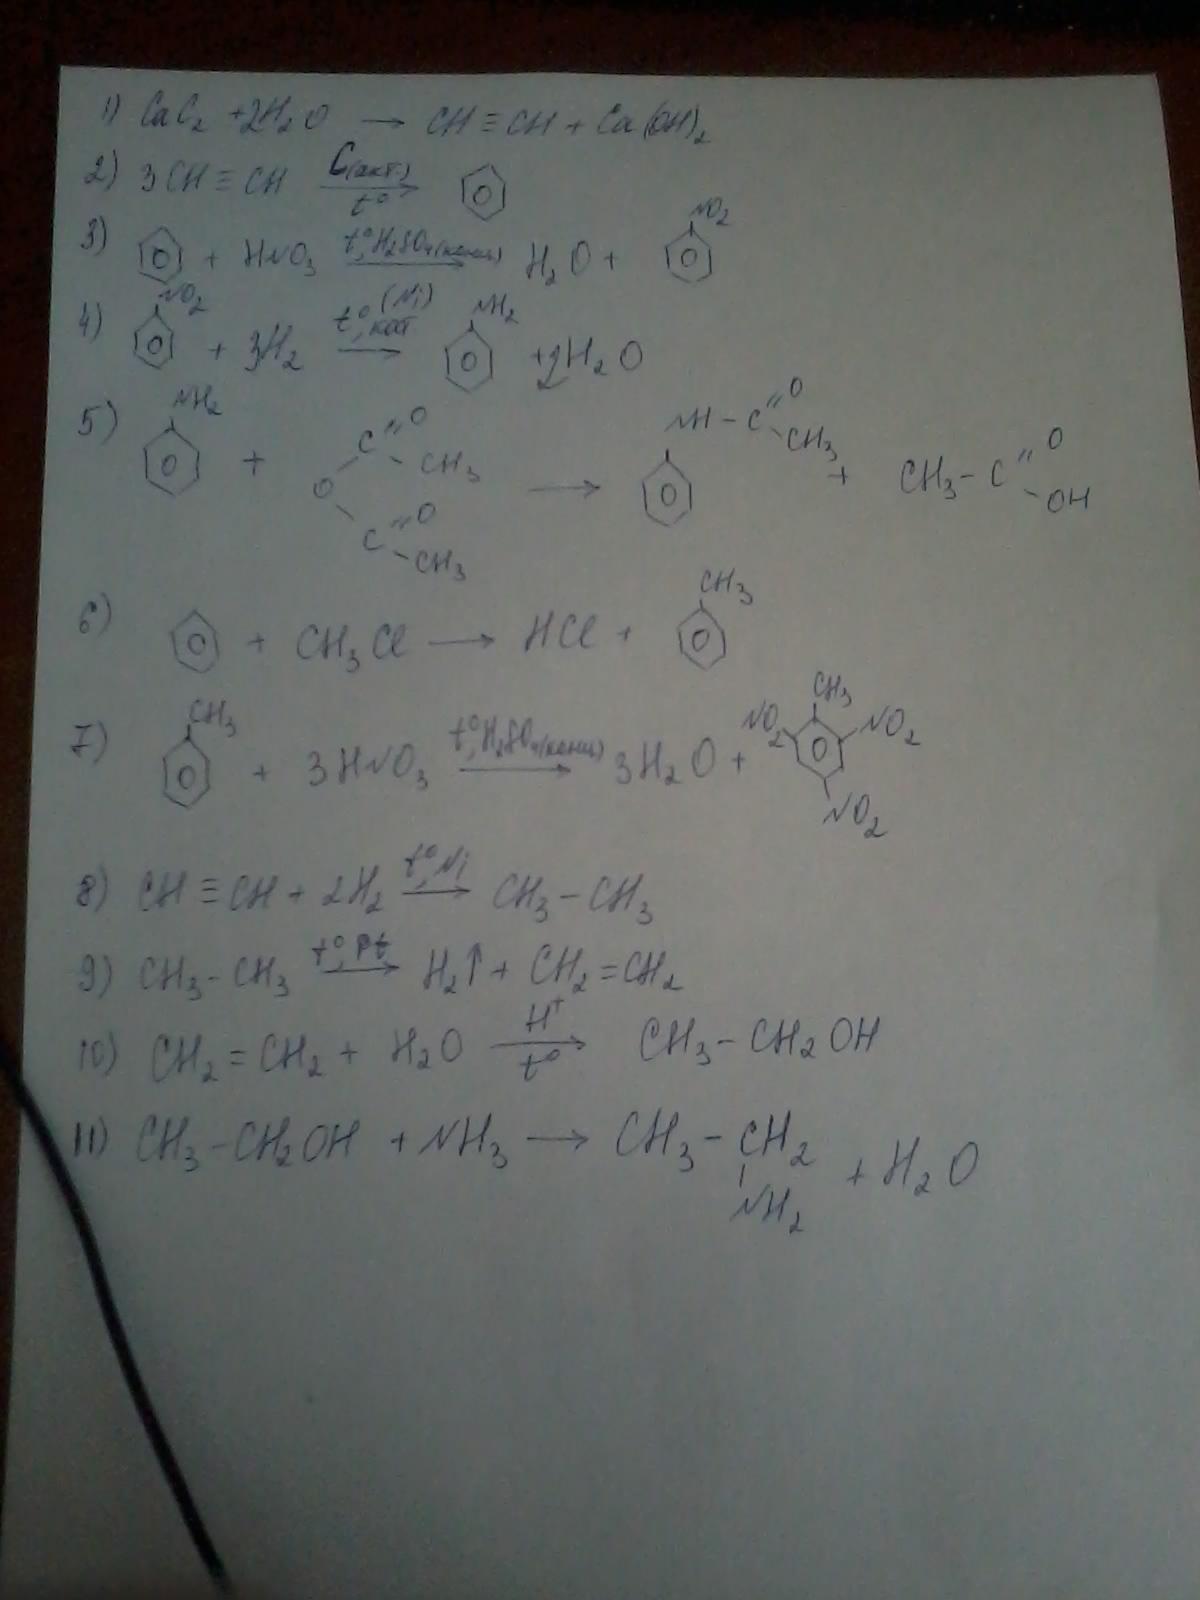 1) CaC2 + 2H2O → CH≡CH + Ca(OH)2
2) 3CH≡CH C(акт.) t° →
3) + HNO3 t°, H2SO4(конц) → H2O + NO2
4) NO2 + 3H2 t°, кат (Ni) → NH2 + 2H2O
5) NH2 + O C=O -CH3 C=O -CH3 → NH-C=O CH3 + CH3-C=O -OH
6) + CH3Cl → HCl + CH3
7) CH3 + 3HNO3 t°, H2SO4(конц) → 3H2O + NO2 CH3 NO2 NO2
8) CH≡CH + 2H2 t°, Ni → CH3-CH3
9) CH3-CH3 t°, Pt → H2↑ + CH2=CH2
10) CH2=CH2 + H2O H+ t° → CH3-CH2OH
11) CH3-CH2OH + NH3 → CH3-CH2 NH2 + H2O